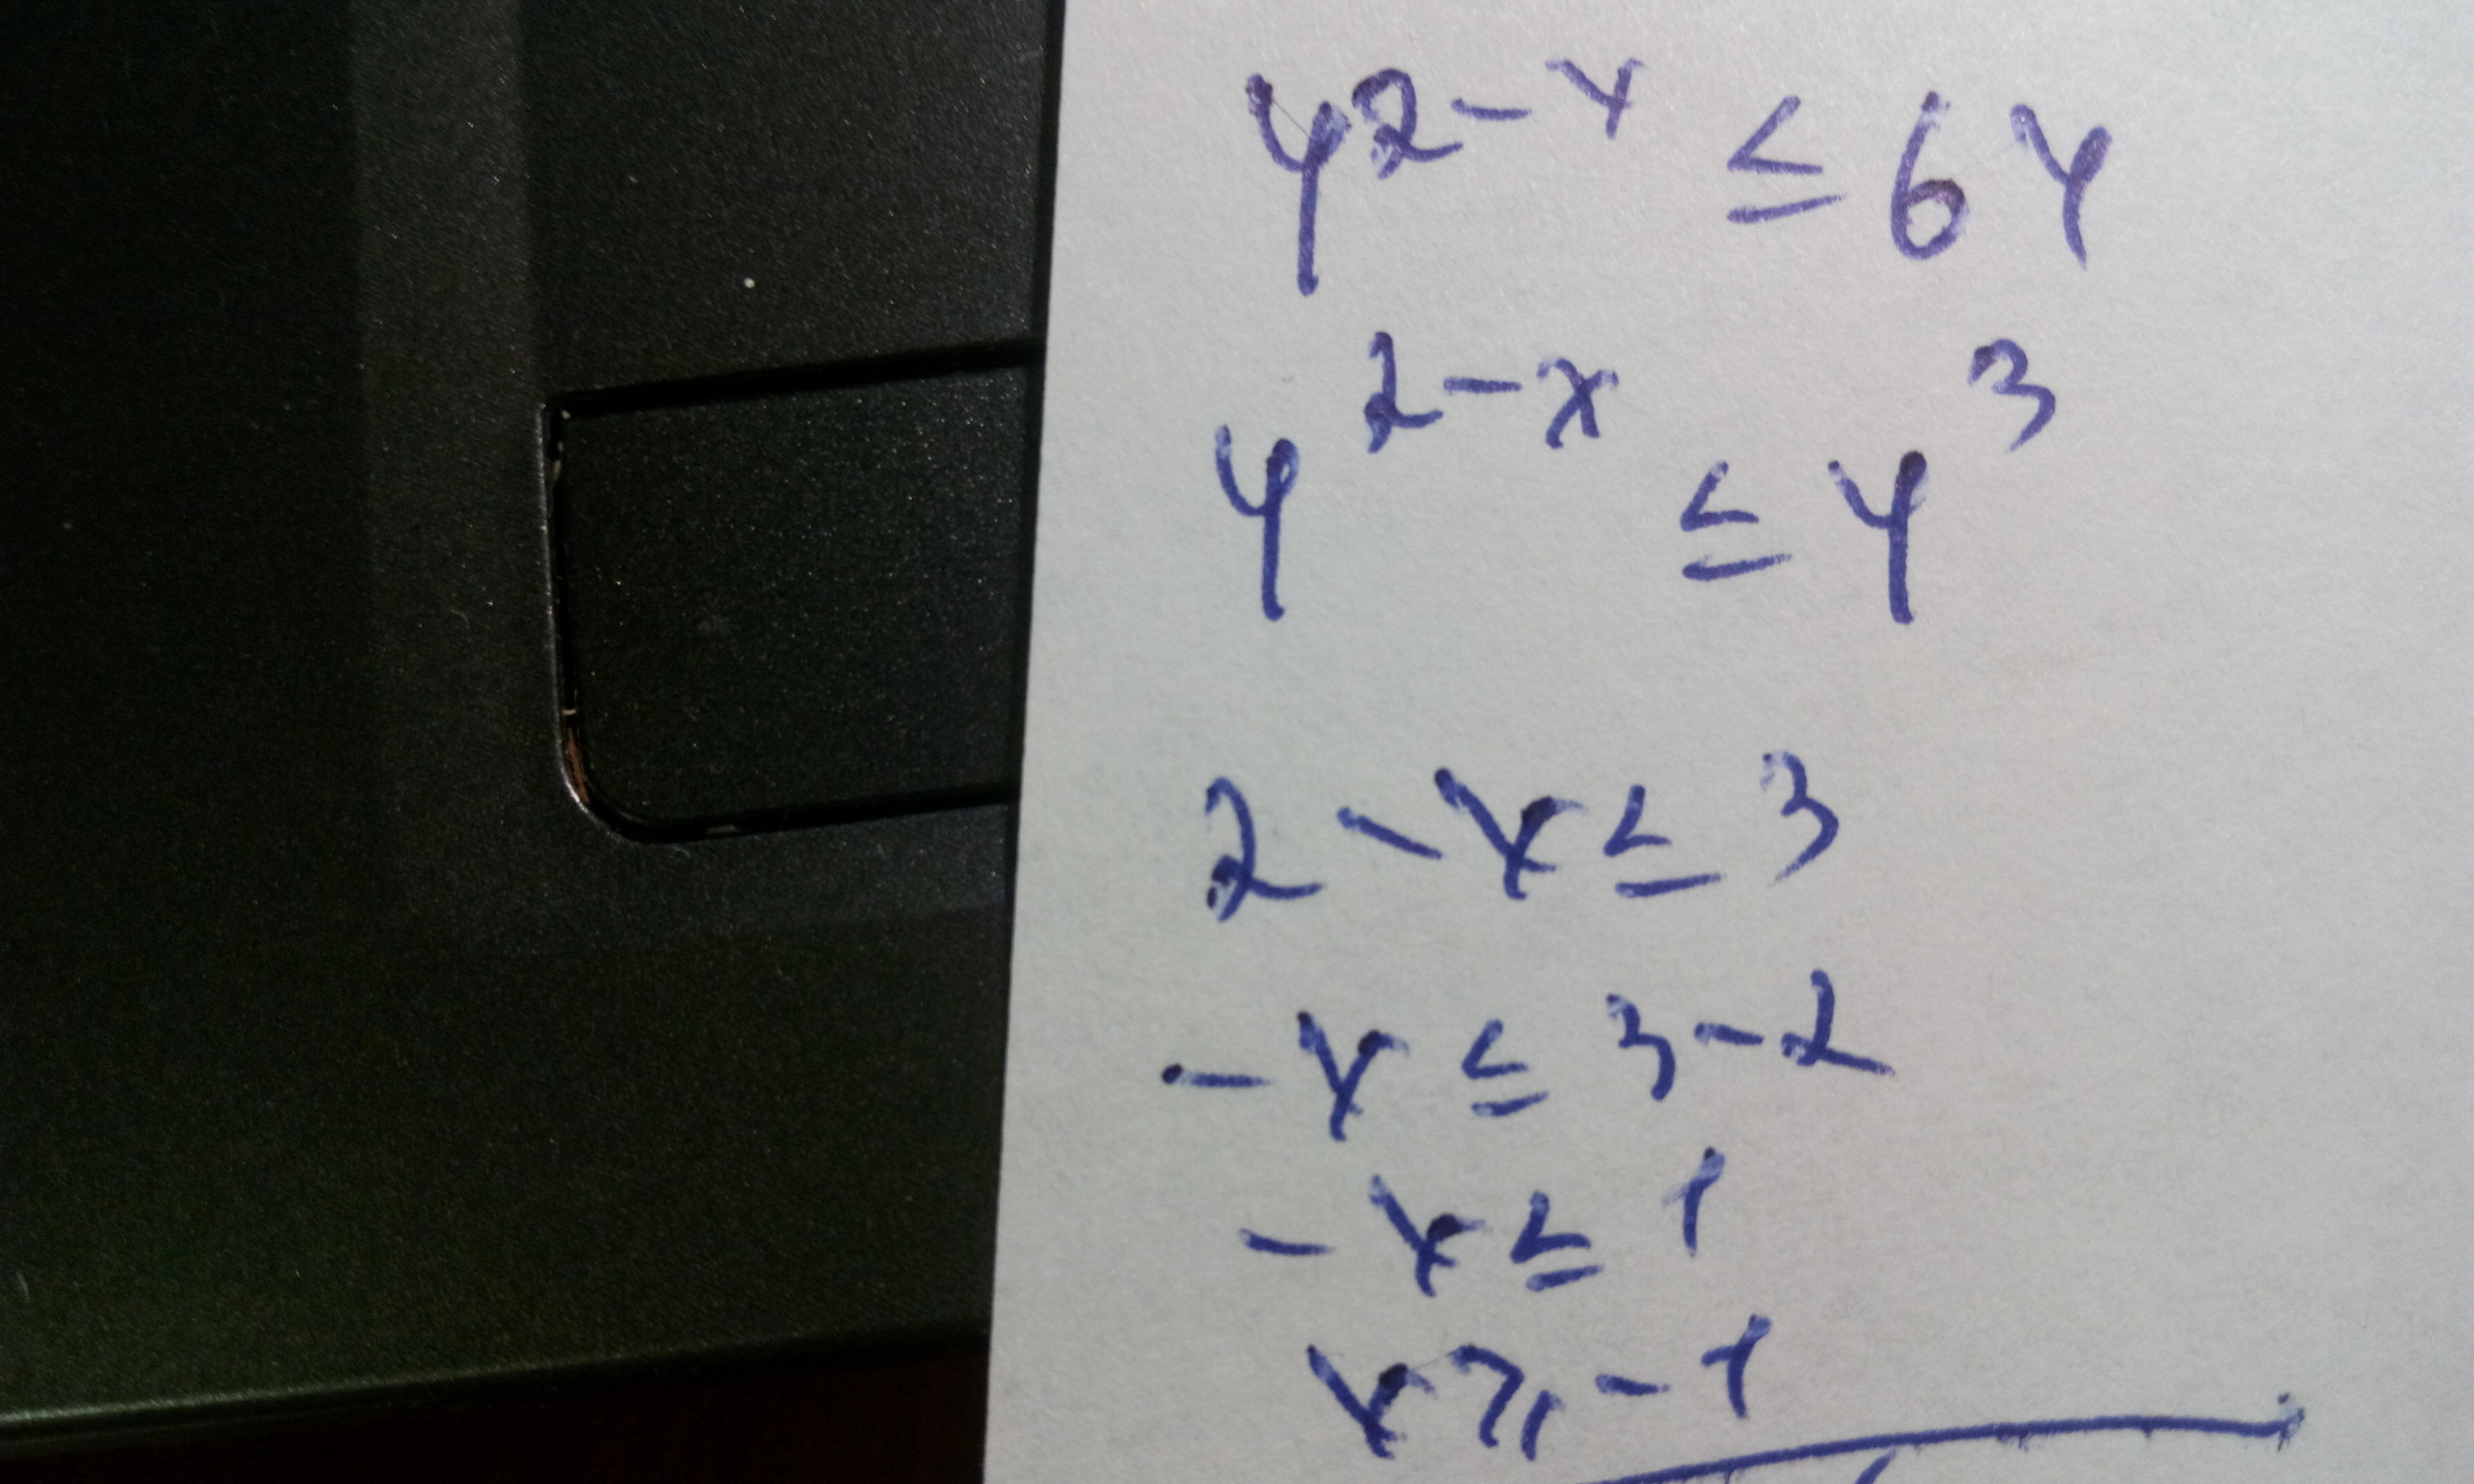 4^{2-x} ≤ 64
4^{2-x} ≤ 4^3
2 - x ≤ 3
- x ≤ 3 - 2
- x ≤ 1
x ⩾ - 1